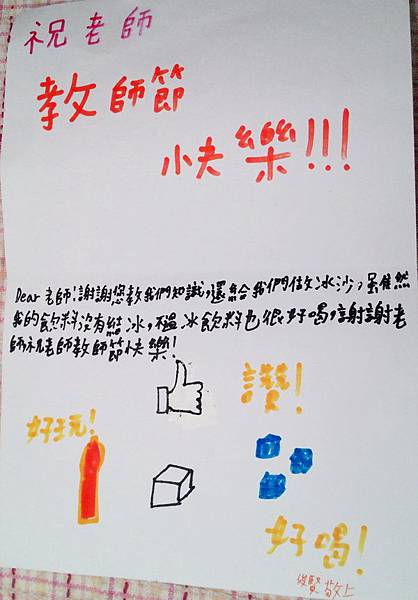 祝老師
教師節
快樂!!!
Dear老師!謝謝您教我們知識,還給我們做冰沙,虽隹然
我的飲料沒有結冰,不過冰飲料也很好喝,謝謝老
師祝老師教師節快樂!
讚!
好玩!
好喝!
敬上